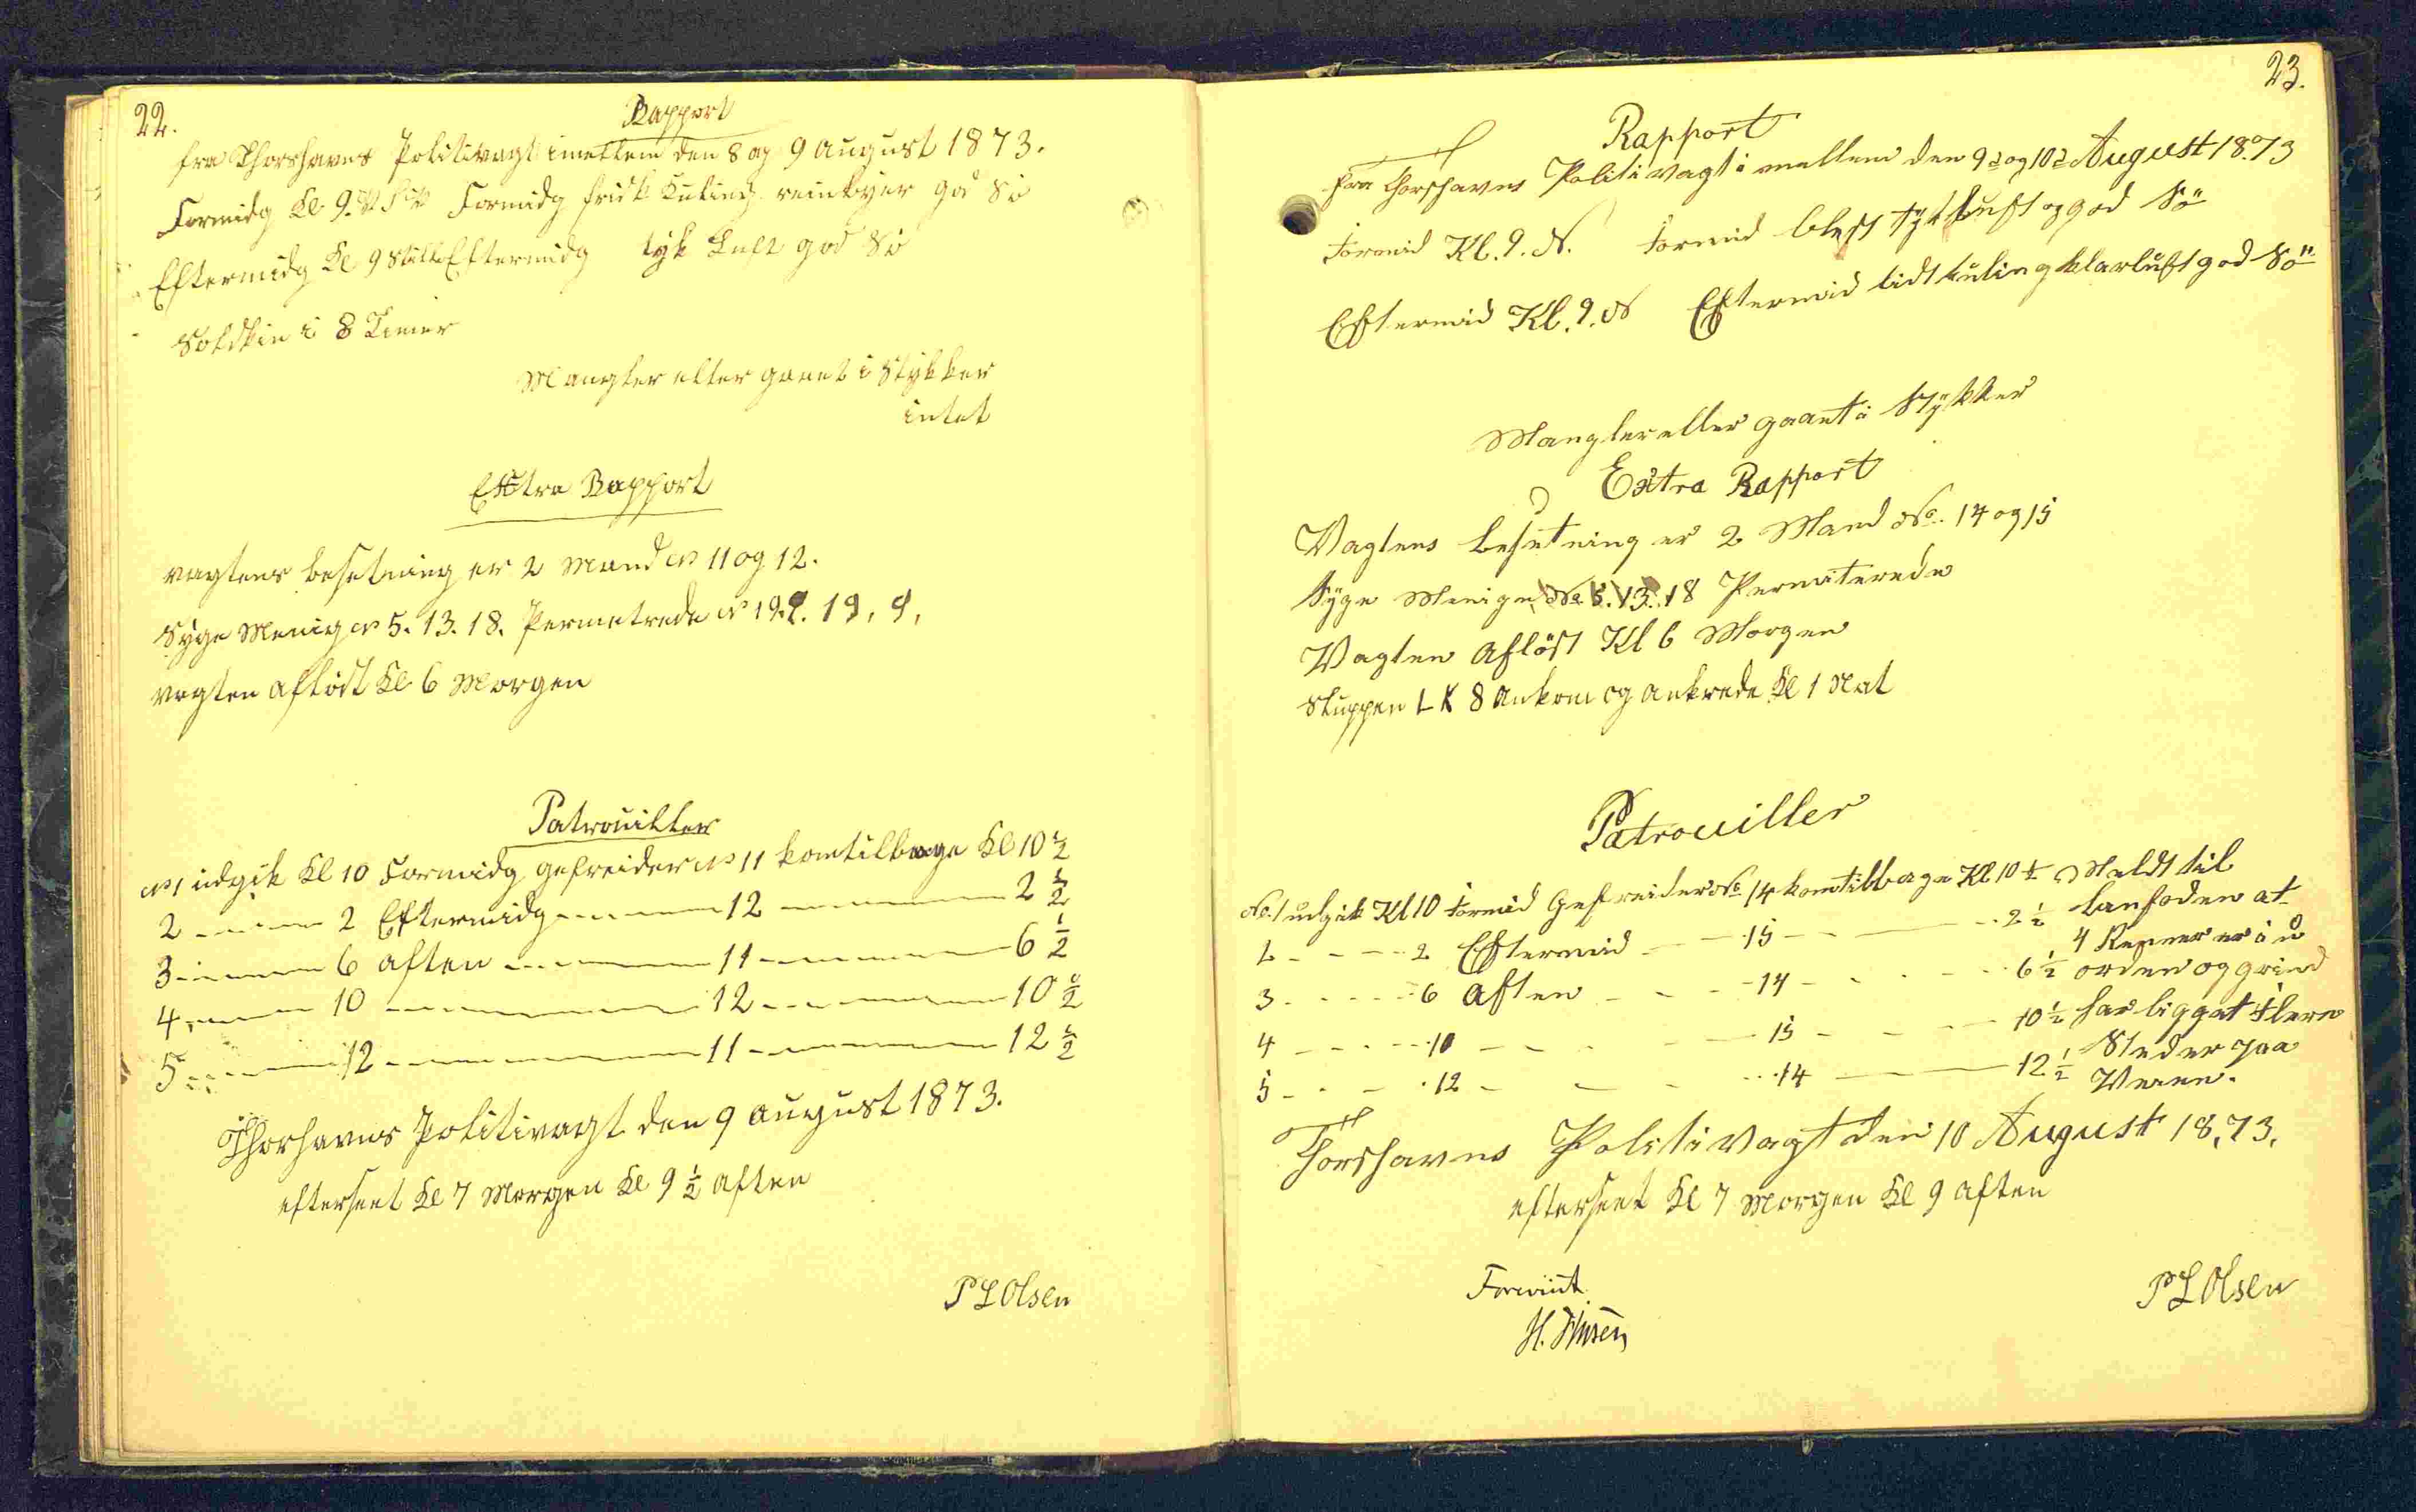 22.
Rapport
fra Thorshavns Politivagt imellem den 8 og 9 August 1873.
Formidg Kl 9. Formidg frisk Kuling reinbyer god Sö
Eftermidg Kl 9 Stille Eftermidg tyk Luft god Sö
Solskin i 8 Timer
Mangler eller gaaet i Stykker
intet
Extra Rapport
vagtens besetning er 2 Mand No 11 og 12.
Syge Menig No 5. 13. 18. Permetrede No 19. 9.
vagten aflöst Kl 6 Morgen
Patrouiller
No 1 udgik Kl 10 Formidg gefreider No 11 kom tilbage Kl 10 ½
2 - - - 2 Eftermidg - - - 12 - - - 2 ½
3 - - - 6 aften - - - 11 - - - 6 ½
4 - - - 10 - - - 12 - - - 10 ½
5 - - - 12 - - - 11 - - - 12 ½
Thorhavns Politivagt den 9 August 1873.
efterseet Kl 7 Morgen Kl 9 ½ aften
P L Olsen
23.
Rapport
Fra Thorshavns Politivagt i mellem den 9d og 10d August 18.73
Formid Kl. 9. N. Formid blest tyk luft og god Sö
Eftermid Kl. 9. N Eftermid lidt kuling klarluft god Sö
Mangler eller gaaet i Stykker
Extra Rapport
Vagtens besetning er 2 Mand No. 14 og 15
Syge Menige No 5. 13. 18 Permiterede
Vagten Aflöst Kl 6 Morgen
Sluppen L K 8 Ankom og ankrede Kl 1 Nat
Patrouiller
No. 1 udgik Kl 10 Formid Gefreider No 14 kom tilbage Kl 10 ½ Meldt til
2 - - - 2 Eftermid - - - 15 - - - 2 ½ Lanfoden at
3 - - - 6 Aften - - - 14 - - - 6 ½ 4 Renner er i u
orden og grind
4 - - - 10 - - - 15 - - - 10 ½ har ligget Flere
5 - - - 12 - - - 14 - - - 12 ½ Steder paa
Veien.
Thorshavns Politivagt den 10 August 18.73.
efterseet Kl 7 Morgen Kl 9 aften
P L Olsen
Forevist
H.